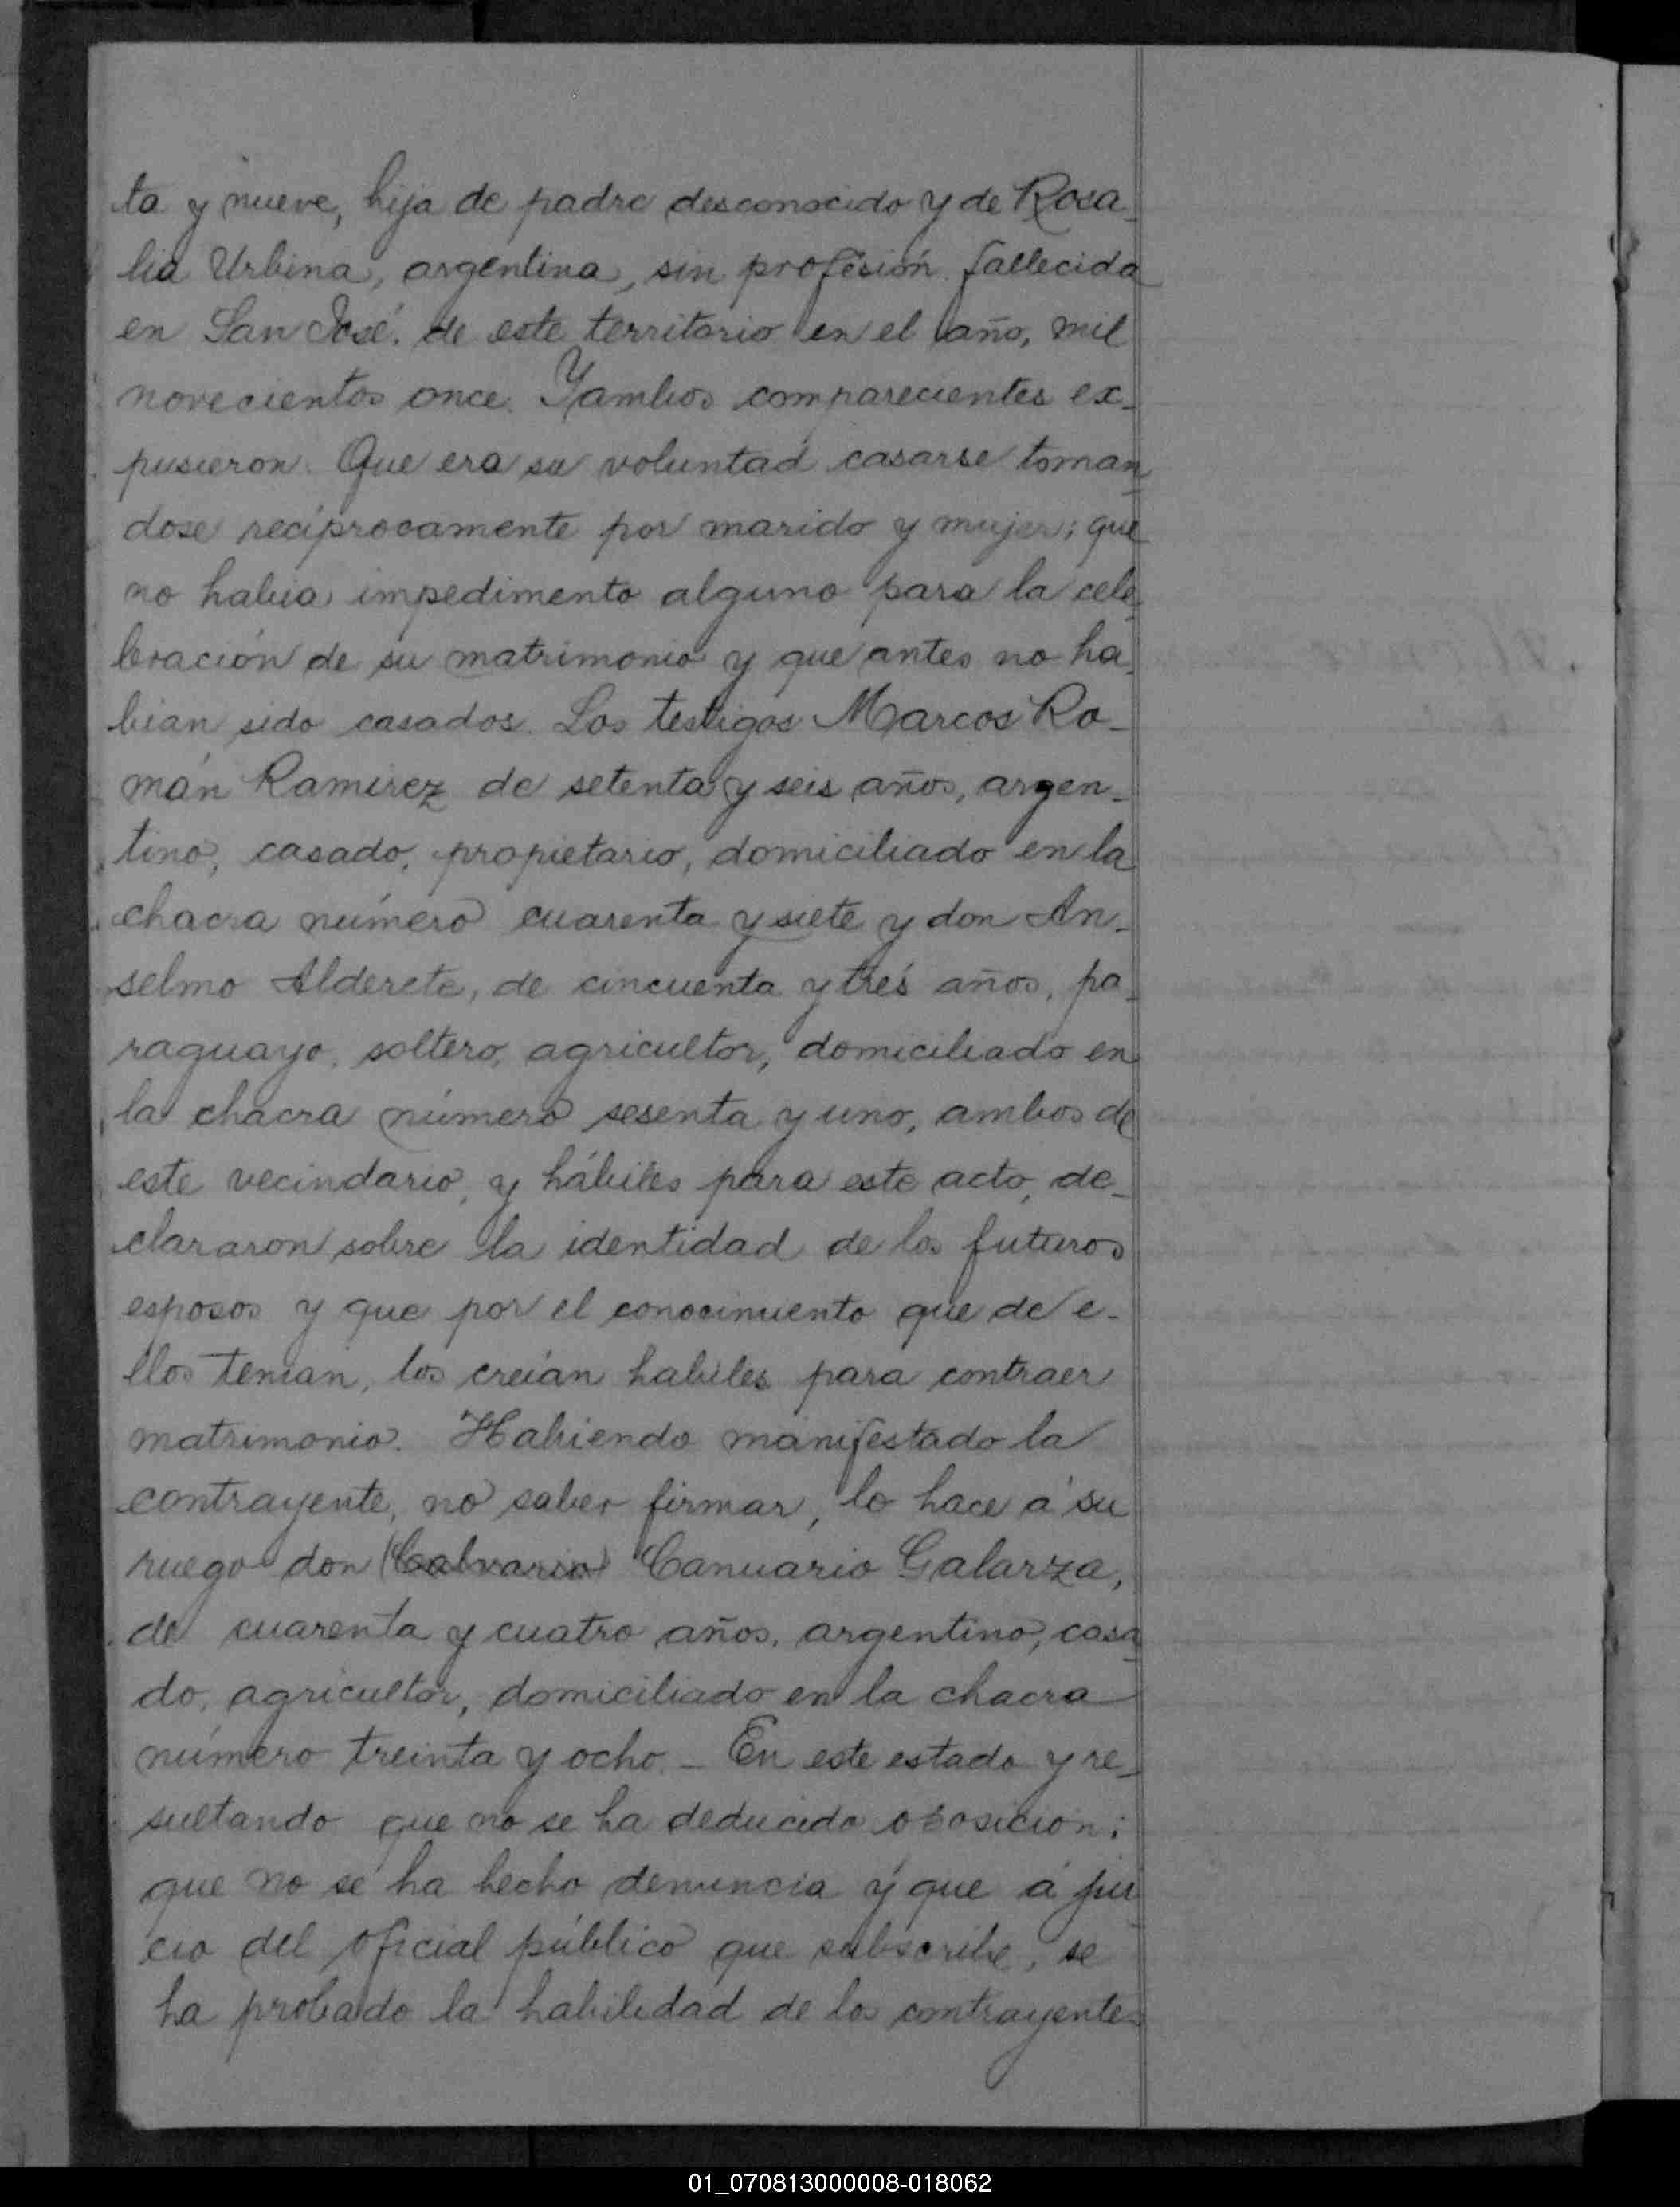 ta y nueve, hija de padre desconocido y de Rosa-
lia Urbina, argentina, sin profesión fallecida
en San José, de este territorio en el año, mil
novecientos once. Y ambos comparecientes ex-
pusieron: Que era su voluntad casarse toman-
dose recíprocamente por marido y mujer; que
no habia impedimento alguno para la cele-
bración de su matrimonio y que antes no ha-
bian sido casados. Los testigos Marcos Ro-
mán Ramirez de setenta y seis años, argen-
tino, casado, propietario, domiciliado en la
chacra número cuarenta y siete y don An-
selmo Alderete, de cincuenta y trés años, pa-
raguayo, soltero, agricultor, domiciliado en
la chacra número sesenta y uno, ambos de
este vecindario, y hábiles para este acto, de-
clararon sobre la identidad de los futuros
esposos y que por el conocimiento que de e-
llos tenian, los creían habiles para contraer
matrimonio. Habiendo manifestado la
contrayente, no saber firmar, lo hace á su
ruego don (Calvario) Canuario Galarza,
de cuarenta y cuatro años, argentino, casa-
do, agricultor, domiciliado en la chacra
número treinta y ocho. - En este estado y re-
sultando que no se ha deducido oposicion;
que no se ha hecho denuncia y que á jui-
cio del oficial público que subscribe, se
ha probado la habilidad de los contrayentes
01_070813000008-018062